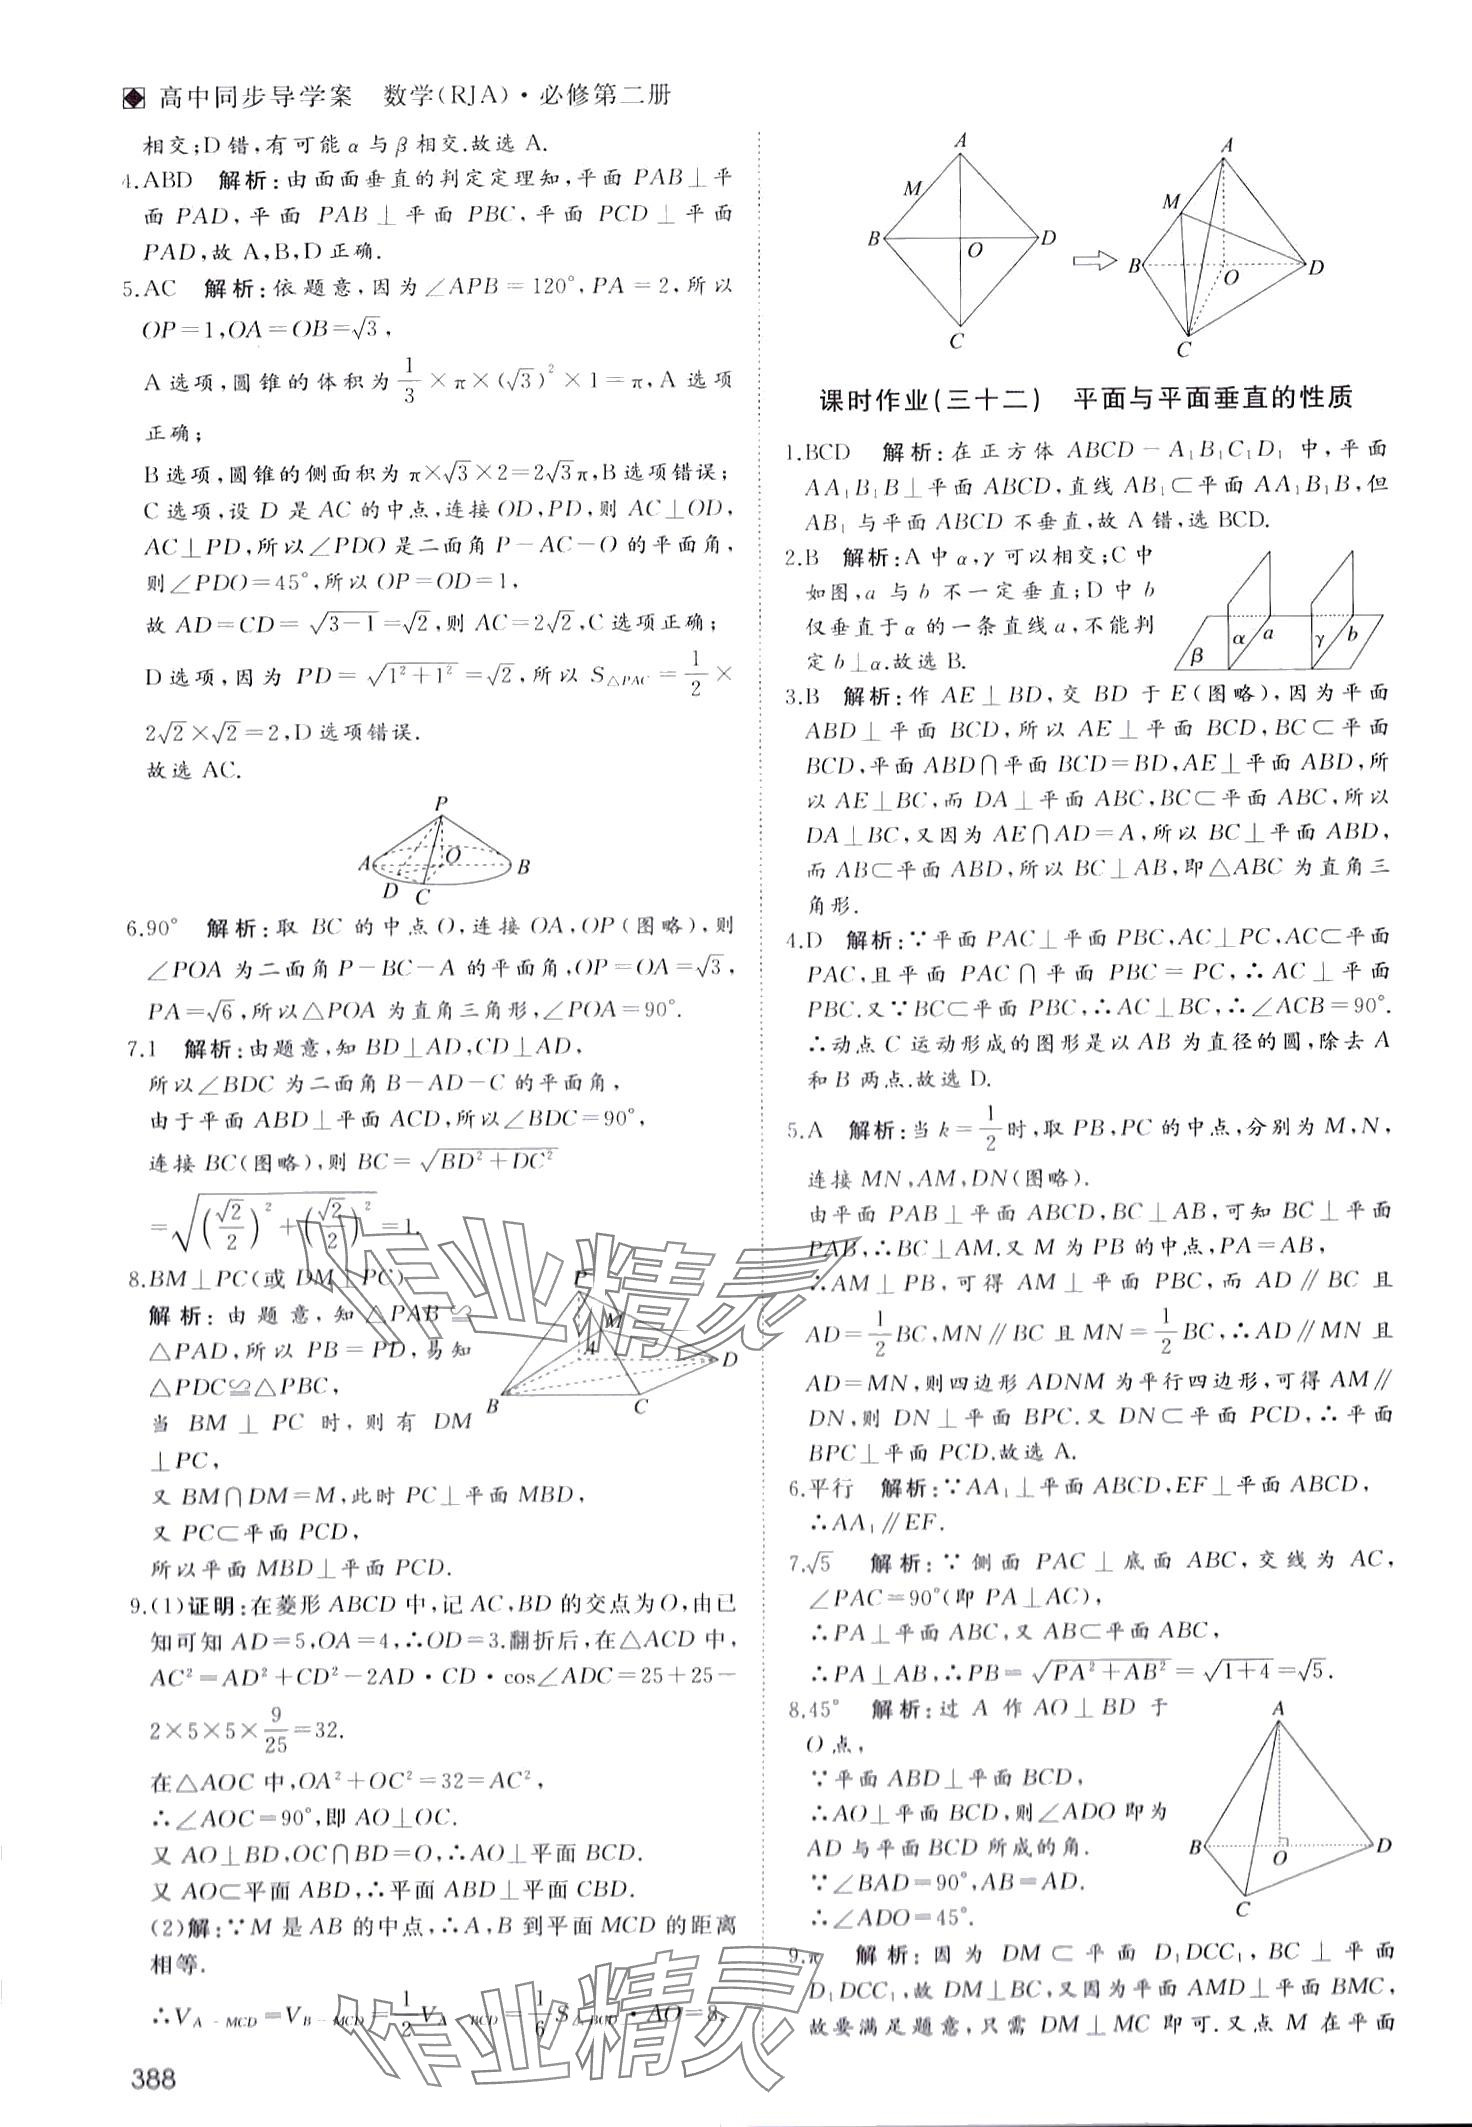 高中同步导学案 数学(RJA)·必修第二册
相交;D错,有可能α与β相交.故选A.
4.ABD 解析:由面面垂直的判定定理知,平面PAB⊥平
面PAD,平面 PAB⊥平面 PBC,平面 PCD⊥平面
PAD,故A,B,D正确.
5.AC 解析:依题意,因为∠APB=120°,PA=2,所以
OP=1,OA=OB=√3,
A选项,圆锥的体积为1/3×π×(√3)²×1=π,A选项
正确;
B选项,圆锥的侧面积为π×√3×2=2√3π,B选项错误;
C选项,设D是AC的中点,连接OD,PD,则AC⊥OD,
AC⊥PD,所以∠PDO是二面角P-AC-O的平面角,
则∠PDO=45°,所以OP=OD=1,
故AD=CD=√(3-1)=√2,则AC=2√2,C选项正确;
D选项,因为PD=√(1²+1²)=√2,所以S△PAC=1/2×
2√2×√2=2,D选项错误.
故选AC.
P
A
O
B
D
C
6.90° 解析:取BC的中点O,连接OA,OP(图略),则
∠POA为二面角P-BC-A的平面角,OP=OA=√3,
PA=√6,所以△POA为直角三角形,∠POA=90°.
7.1 解析:由题意,知BD⊥AD,CD⊥AD,
所以∠BDC为二面角B-AD-C的平面角,
由于平面ABD⊥平面ACD,所以∠BDC=90°,
连接BC(图略),则BC=√(BD²+DC²)
=√((√2/2)²+(√2/2)²)=1.
8.BM⊥PC(或DM⊥PC)
解析:由题意,知△PAB≌
△PAD,所以PB=PD,易知
△PDC≌△PBC,
当BM⊥PC时,则有DM
⊥PC,
P
M
A
D
B
C
又BM∩DM=M,此时PC⊥平面MBD,
又PC⊂平面PCD,
所以平面MBD⊥平面PCD.
9.(1)证明:在菱形ABCD中,记AC,BD的交点为O,由已
知可知AD=5,OA=4,∴OD=3.翻折后,在△ACD中,
AC²=AD²+CD²-2AD·CD·cos∠ADC=25+25-
2×5×5×9/25=32.
在△AOC中,OA²+OC²=32=AC²,
∴∠AOC=90°,即AO⊥OC.
又AO⊥BD,OC∩BD=O,∴AO⊥平面BCD.
又AO⊂平面ABD,∴平面ABD⊥平面CBD.
(2)解:∵M是AB的中点,∴A,B到平面MCD的距离
相等.
∴V A-MCD=V B-MCD=1/2 V A-BCD=1/6 S△BCD·AO=8.
388
A
M
B
O
D
C
A
M
B
O
D
C
课时作业(三十二) 平面与平面垂直的性质
1.BCD 解析:在正方体ABCD-A₁B₁C₁D₁中,平面
AA₁B₁B⊥平面ABCD,直线AB₁⊂平面AA₁B₁B,但
AB₁与平面ABCD不垂直,故A错,选BCD.
2.B 解析:A中α,γ可以相交;C中
如图,a与b不一定垂直;D中b
仅垂直于α的一条直线a,不能判
定b⊥α.故选B.
β
α
a
γ
b
3.B 解析:作AE⊥BD,交BD于E(图略),因为平面
ABD⊥平面BCD,所以AE⊥平面BCD,BC⊂平面
BCD,平面ABD∩平面BCD=BD,AE⊥平面ABD,所
以AE⊥BC,而DA⊥平面ABC,BC⊂平面ABC,所以
DA⊥BC,又因为AE∩AD=A,所以BC⊥平面ABD,
而AB⊂平面ABD,所以BC⊥AB,即△ABC为直角三
角形.
4.D 解析:∵平面PAC⊥平面PBC,AC⊥PC,AC⊂平面
PAC,且平面PAC∩平面PBC=PC,∴AC⊥平面
PBC.又∵BC⊂平面PBC,∴AC⊥BC,∴∠ACB=90°.
∴动点C运动形成的图形是以AB为直径的圆,除去A
和B两点.故选D.
5.A 解析:当k=1/2时,取PB,PC的中点,分别为M,N,
连接MN,AM,DN(图略).
由平面PAB⊥平面ABCD,BC⊥AB,可知BC⊥平面
PAB,∴BC⊥AM.又M为PB的中点,PA=AB,
∴AM⊥PB,可得AM⊥平面PBC,而AD∥BC且
AD=1/2BC,MN∥BC且MN=1/2BC,∴AD∥MN且
AD=MN,则四边形ADNM为平行四边形,可得AM∥
DN,则DN⊥平面BPC.又DN⊂平面PCD,∴平面
BPC⊥平面PCD.故选A.
6.平行 解析:∵AA₁⊥平面ABCD,EF⊥平面ABCD,
∴AA₁∥EF.
7.√5 解析:∵侧面PAC⊥底面ABC,交线为AC,
∠PAC=90°(即PA⊥AC),
∴PA⊥平面ABC,又AB⊂平面ABC,
∴PA⊥AB,∴PB=√(PA²+AB²)=√(1+4)=√5.
8.45° 解析:过A作AO⊥BD于
O点,
∵平面ABD⊥平面BCD,
∴AO⊥平面BCD,则∠ADO即为
AD与平面BCD所成的角.
∵∠BAD=90°,AB=AD.
∴∠ADO=45°.
A
B
O
D
C
9.π 解析:因为DM⊂平面D₁DCC₁,BC⊥平面
D₁DCC₁,故DM⊥BC,又因为平面AMD⊥平面BMC,
故要满足题意,只需DM⊥MC即可.又点M在平面
作业精灵
作业精灵